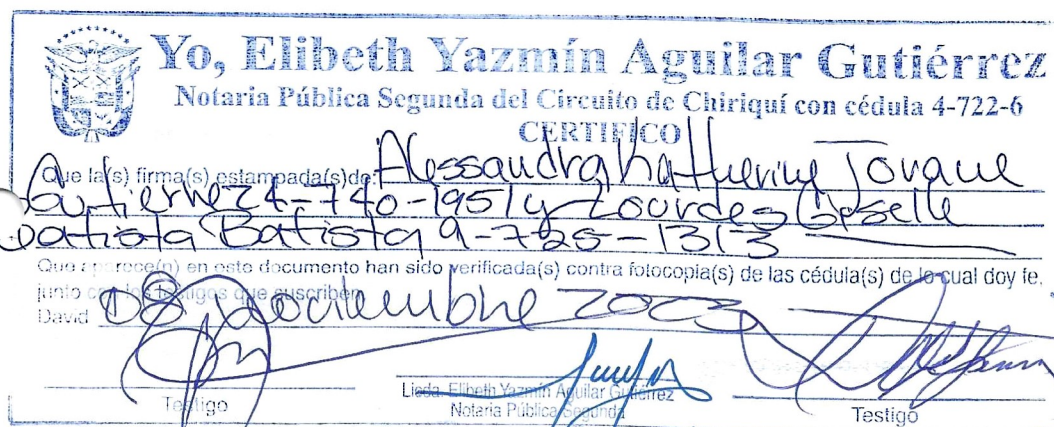 Yo, Elibeth Yazmín Aguilar Gutiérrez
Notaria Pública Segunda del Circuito de Chiriquí con cédula 4-722-6
CERTIFICO
Que la(s) firma(s) estampada(s) de: Alessandra Katherine
Gutierrez 4-740-1951 y Lourdes Gisselle
Batista Batista 9-725-1313
Que aparece(n) en este documento han sido verificada(s) contra fotocopia(s) de las cédula(s) de lo cual doy fe,
junto con los testigos que suscriben
David 08 2023
Testigo
Licda. Elibeth Yazmín Aguilar Gutiérrez
Notaria Pública Segunda
Testigo